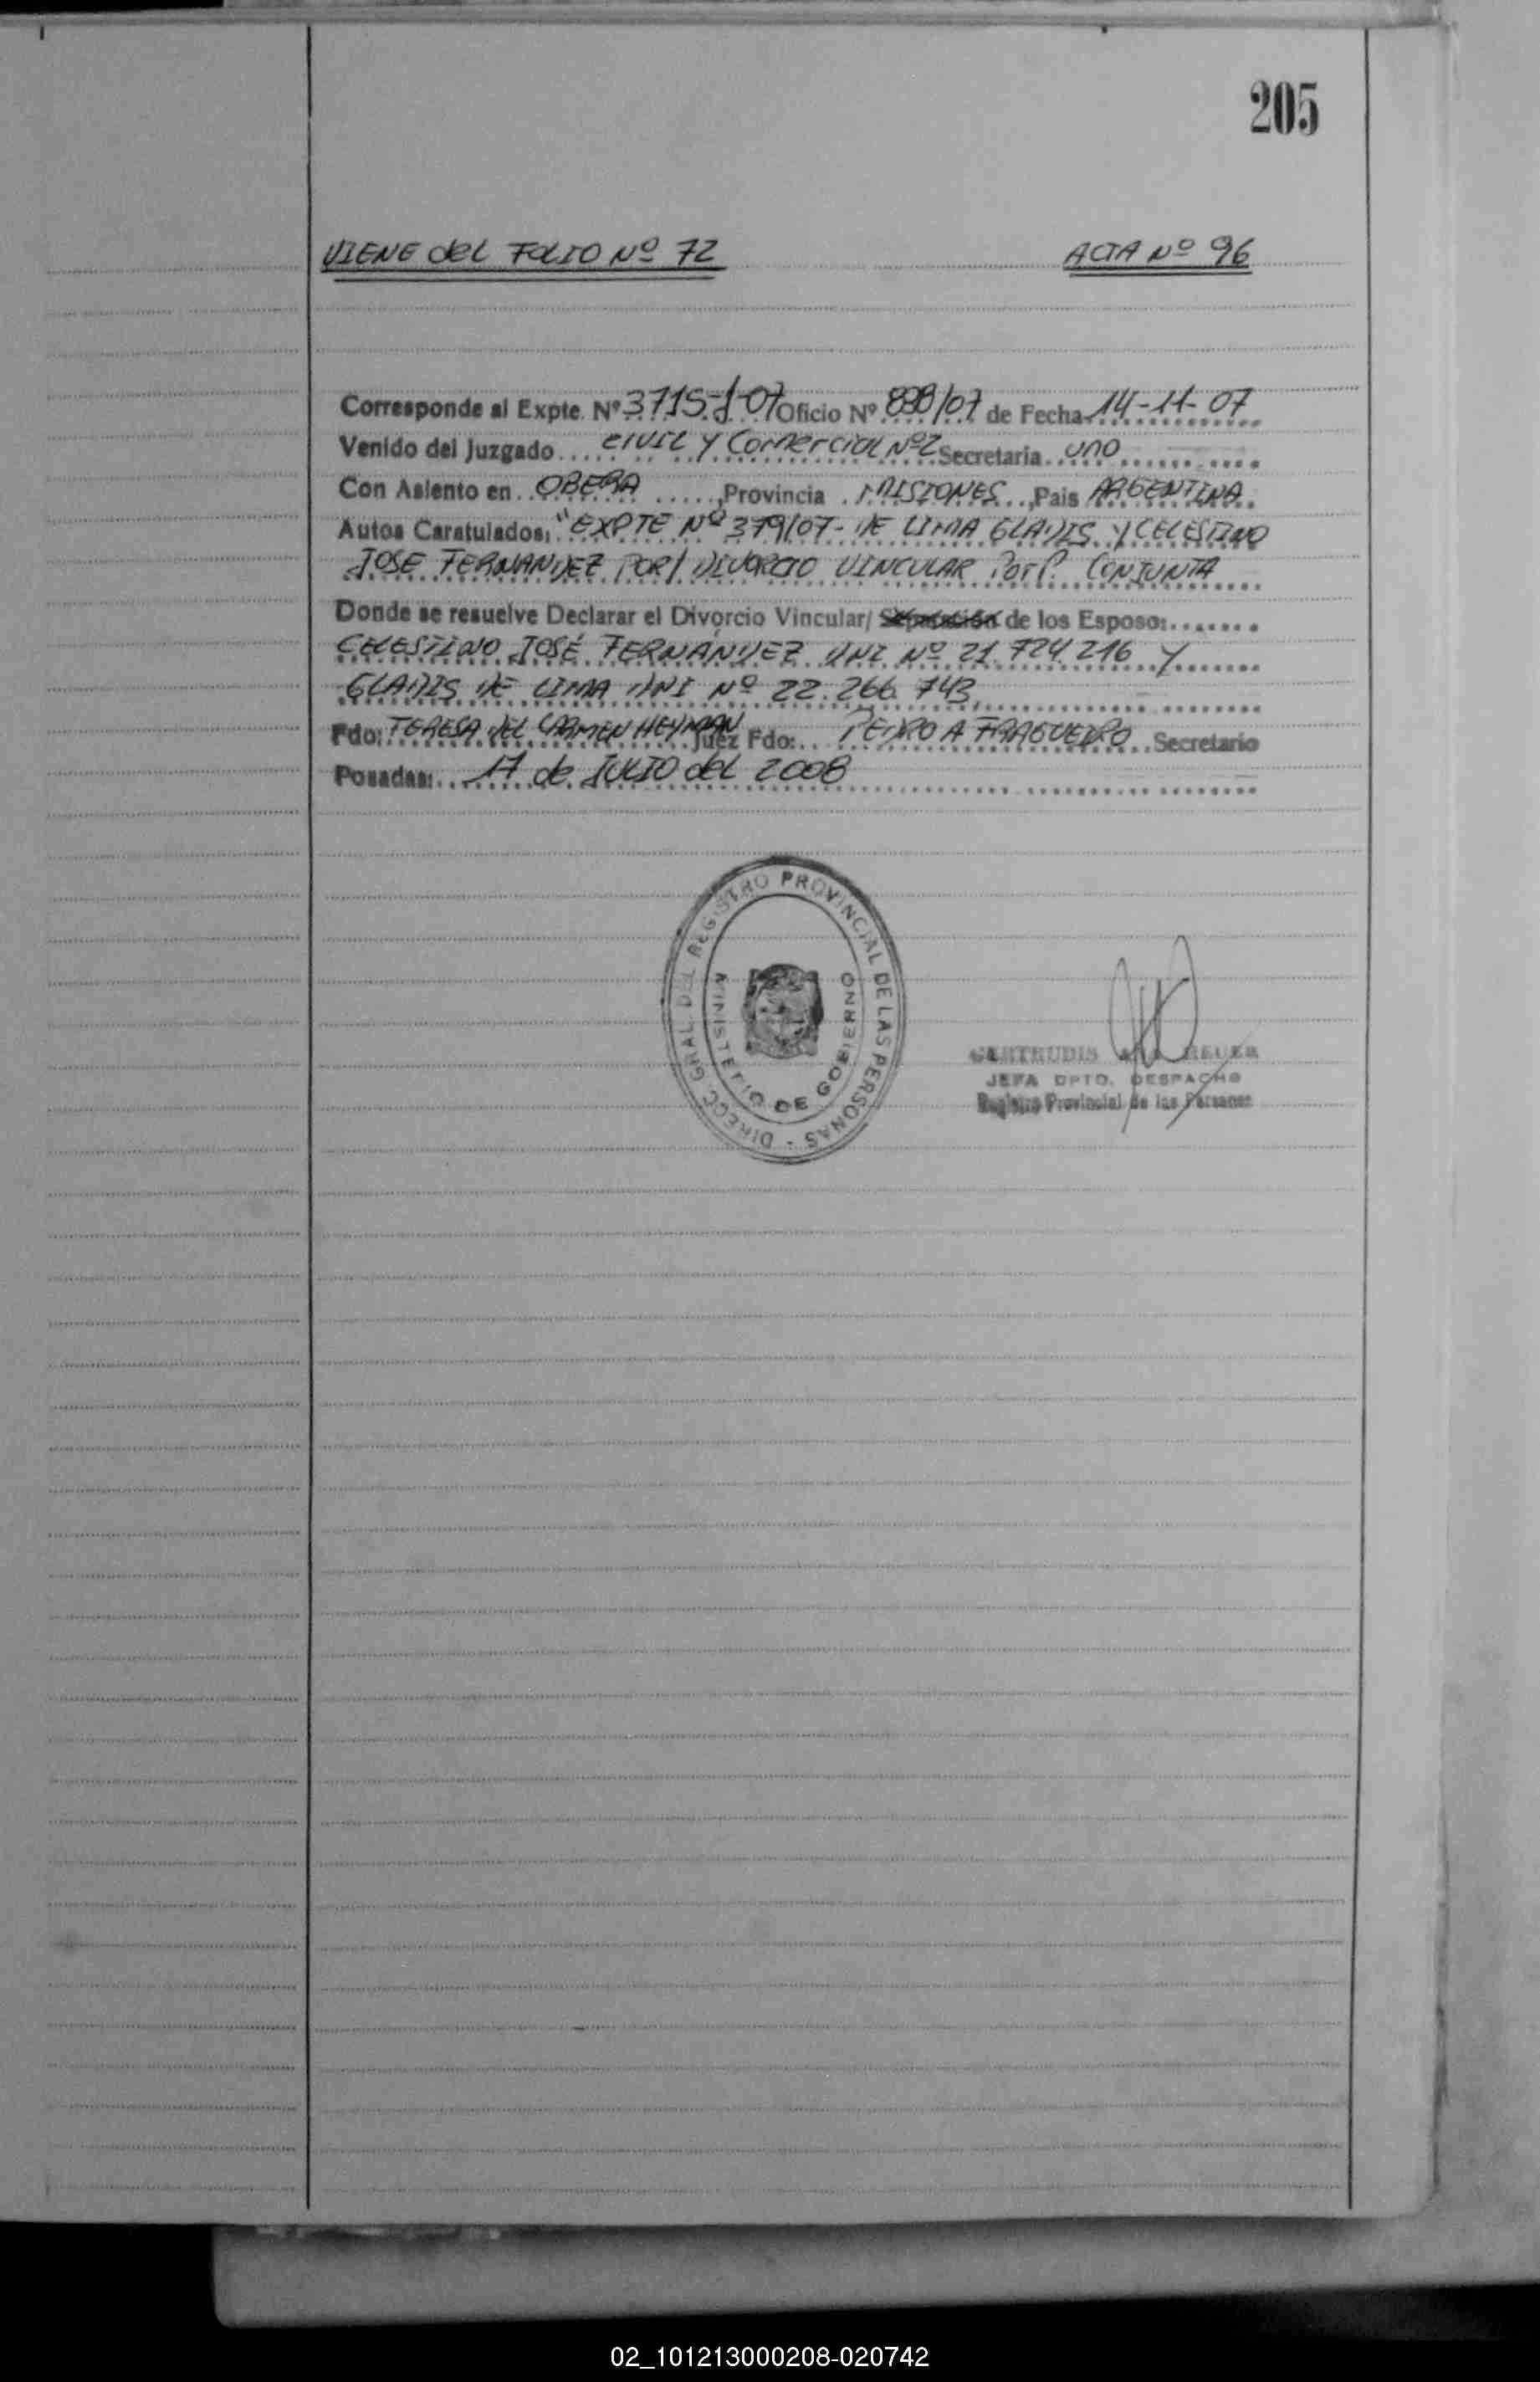 205
VIENE del FOLIO Nº 72 ACTA Nº 96
Corresponde al Expte. Nº 3715-J-07 Oficio Nº 898/07 de Fecha 14-11-07
Venido del Juzgado civil y Comercial Nº2 Secretaria uno
Con Asiento en OBERA, Provincia MISIONES, Pais ARGENTINA
Autos Caratulados: "EXPTE Nº 379/07- DE LIMA GLADIS Y CELESTINO
JOSE FERNANDEZ POR/ DIVORCIO VINCULAR Por P. CONJUNTA
Donde se resuelve Declarar el Divorcio Vincular/ Separación de los Esposo:
CELESTINO JOSÉ FERNÁNDEZ DNI Nº 21.724.216 Y
GLADIS DE LIMA DNI Nº 22.266.743,
Fdo: TERESA DEL CARMEN HEYMAN Juez Fdo: PEDRO A FRAGUEIRO Secretario
Posadas: 17 de JULIO del 2008
DIRECC. GRAL. DEL REGISTRO PROVINCIAL DE LAS PERSONAS -
MINISTERIO DE GOBIERNO
GERTRUDIS
JEFA DPTO. DESPACHO
Registro Provincial de las Personas
02_101213000208-020742